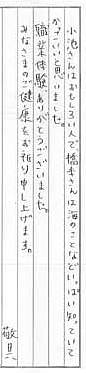 小池さんはおもしろい人で、橋本さんは海のことなどいっぱい知っていて
かっこいいと思いました。
職業体験ありがとうございました。
みなさまのご健康をお祈り申し上げます。
敬具